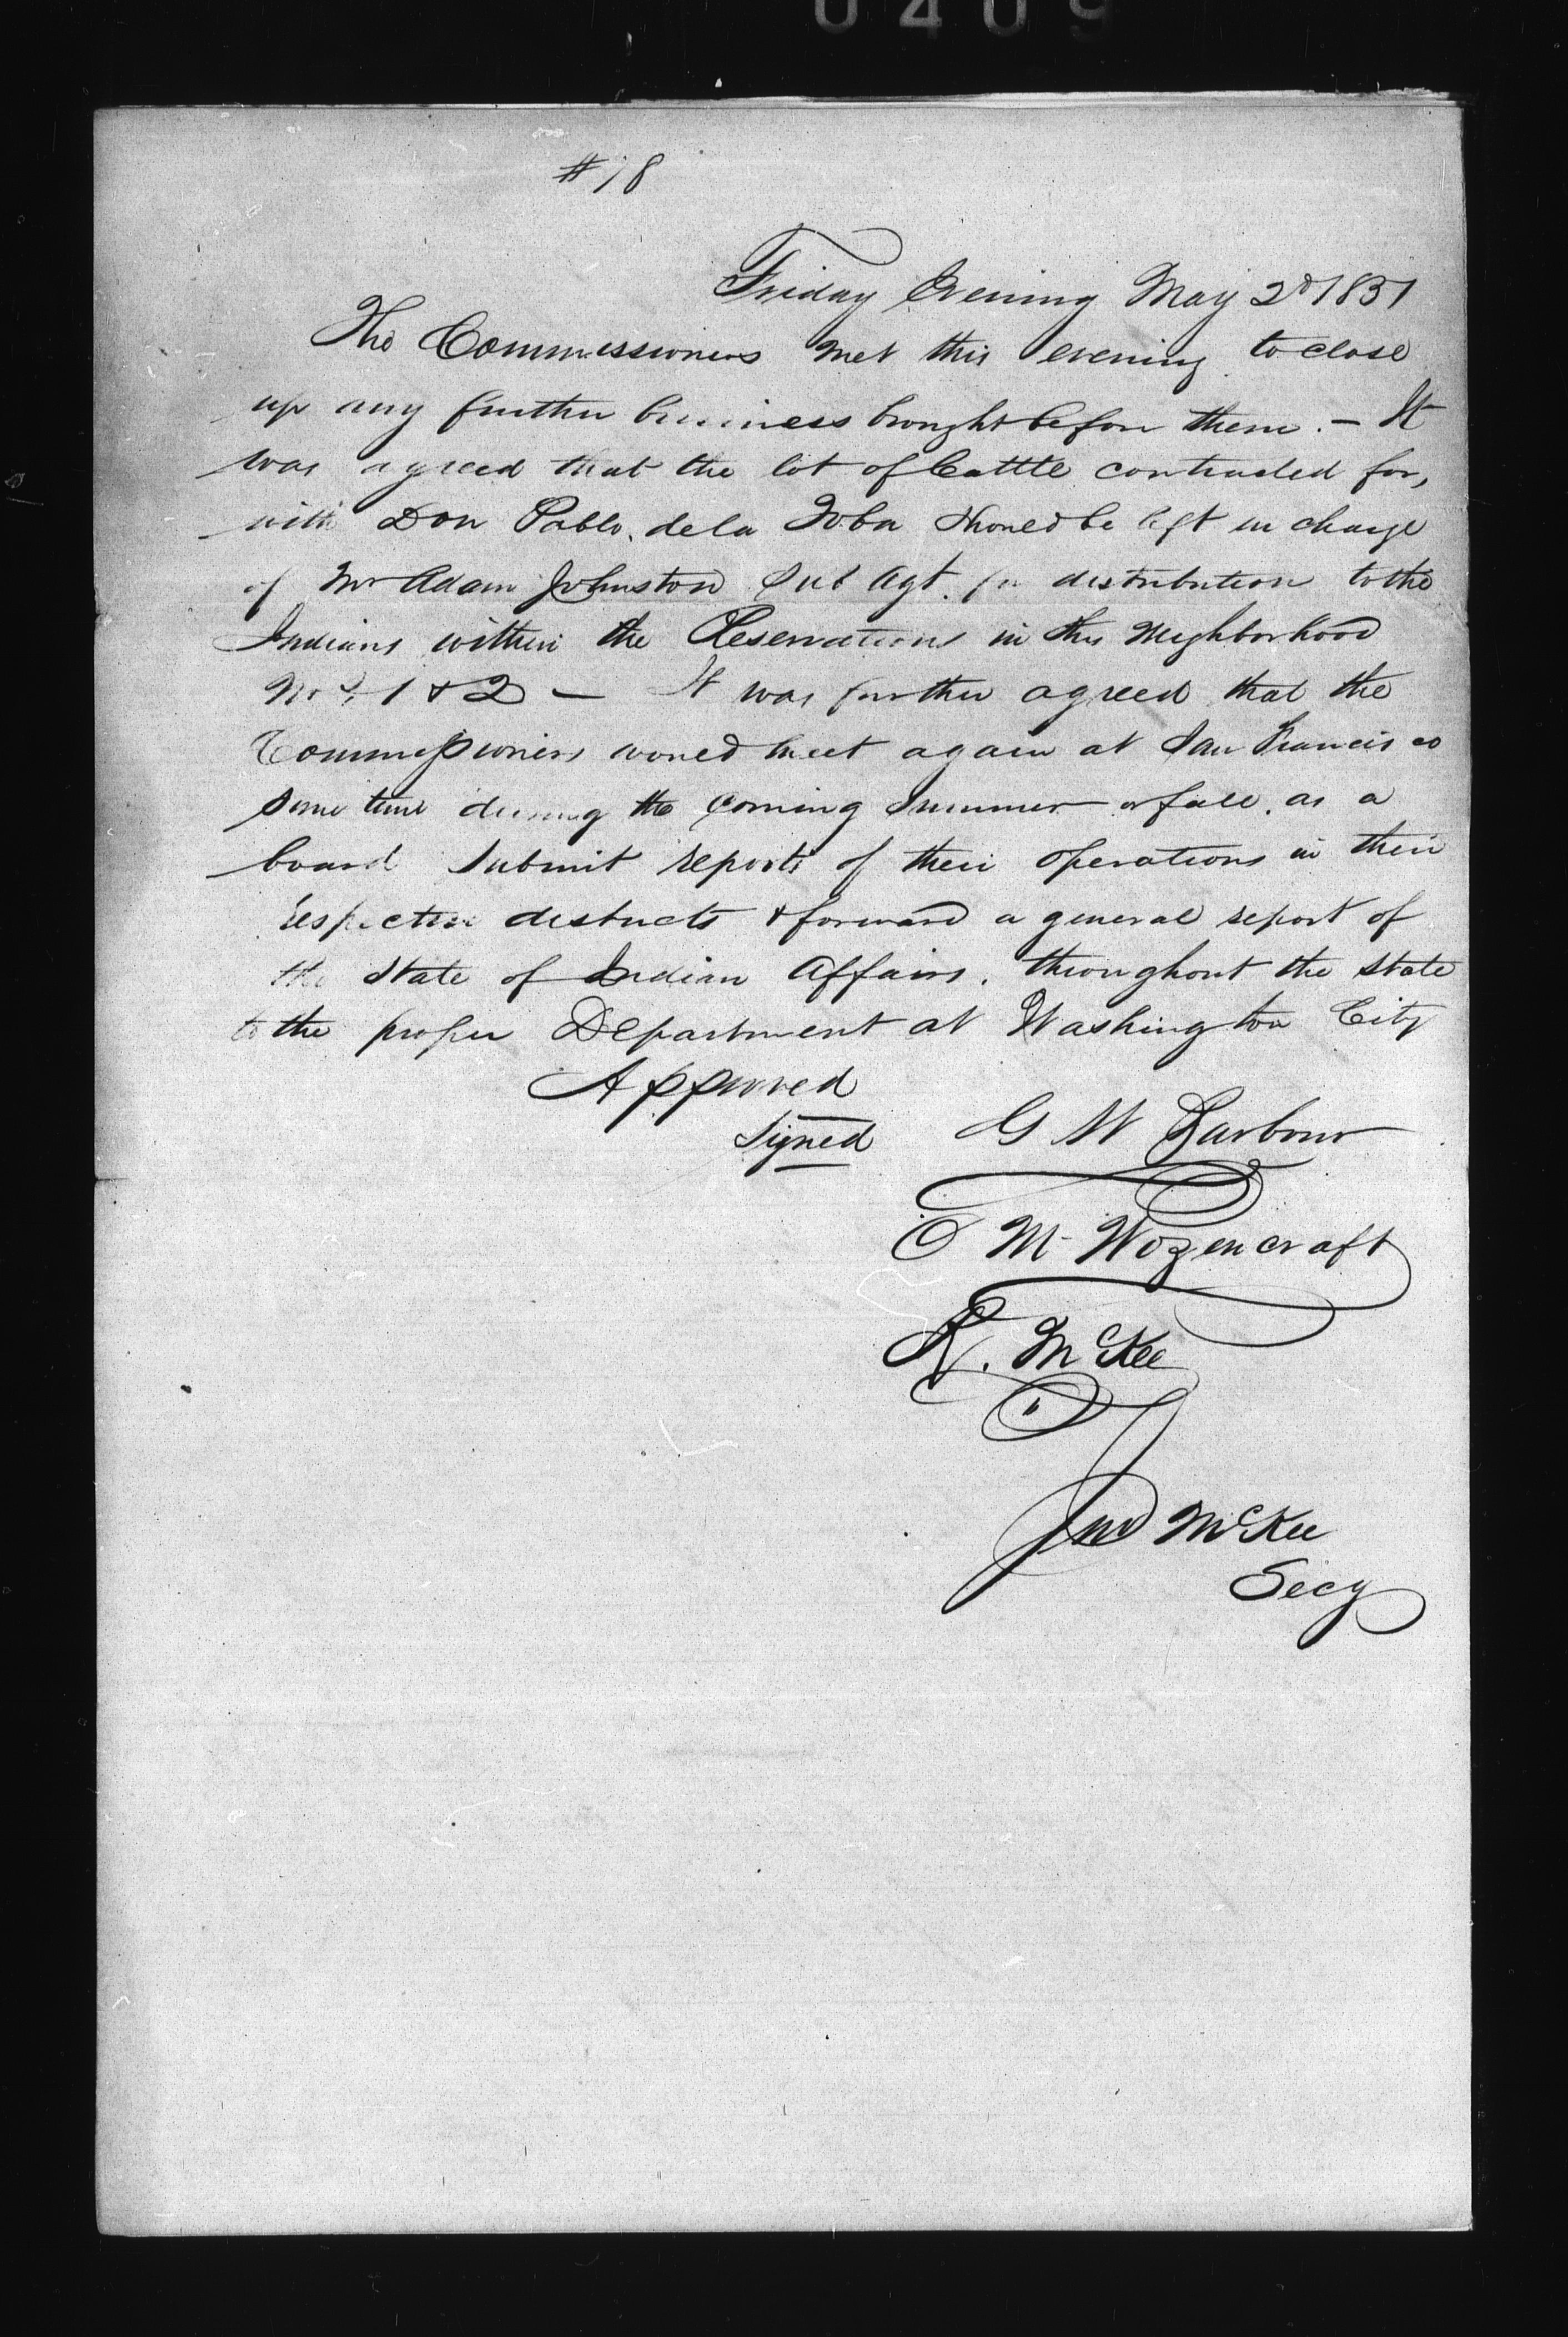 0409
#18
Friday Evening May 2d 1851
The Commissioners met this evening to close
up any further business brought before them. – It
was agreed that the lot of Cattle contracted for,
with Don Pablo. de la Toba should be left in charge
of Mr Adam Johnston Sub Agt. for distribution to the
Indians within the Reservations in this Neighborhood
Nos. 1 & 2 – It was further agreed that the
Commissioners would meet again at San Francisco
some time during the coming Summer or fall. as a
board submit reports of their operations in their
respective districts & forward a general report of
the State of Indian Affairs. throughout the State
to the proper Department at Washington City
Approved
Signed G W Barbour
O M Wozencraft
R. McKee
Jno McKee
Secy